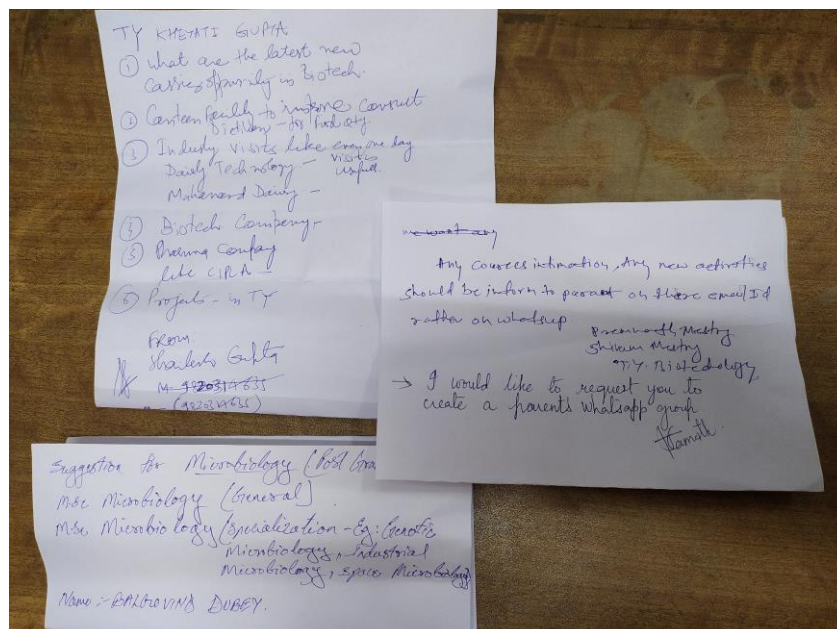 TY KHEYATI GUPTA
① What are the latest new
in Biotech.
② Canteen facility to
- for food qty.
③ Industry visits like every one day
Dairy Technology - visit is
usefull.
Mahanand Dairy -
④ Biotech Company -
⑤ Pharma Company
like CIPLA -
⑥ Projects - in TY
FROM
Gupta
M - 9820317635
M - (9820317635)
we want any
Any cources intimation, Any new activities
should be inform to parent on there email Id
rather on whatsup
Mestry
Shivam Mestry
T.Y. Biotechology
→ I would like to request you to
create a parents whatsapp group
Kamath
Suggestion for Microbiology (Post Gra
MSc Microbiology (General)
MSc Microbiology (Specialization - Eg: Genetic
Microbiology, Industrial
Microbiology, Space Microbiology)
Name :- BALGOVIND DUBEY.